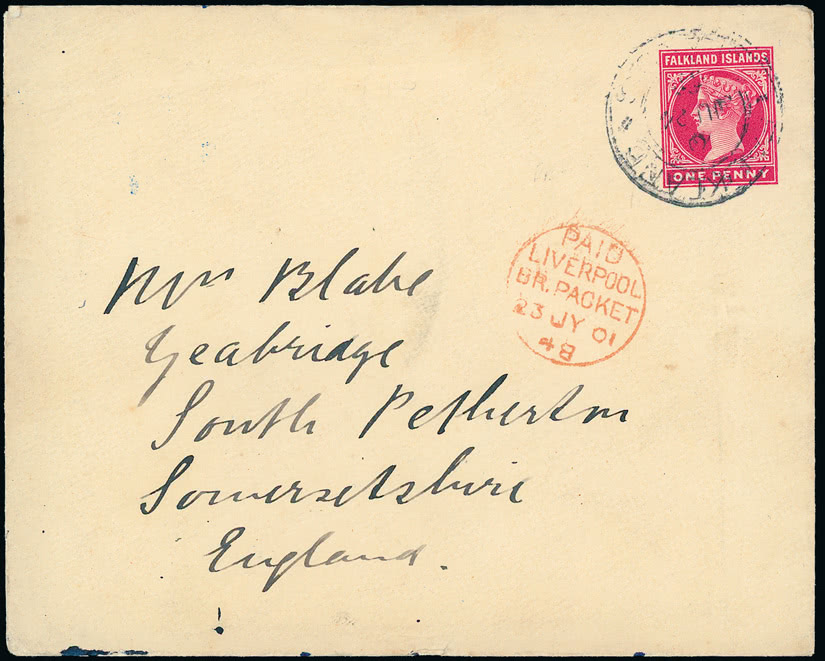 FALKLAND ISLANDS
ONE PENNY
PAID
LIVERPOOL
BR. PACKET
23 JY 01
48
Mrs Blake
Yeabridge
South Petherton
Somersetshire
England.